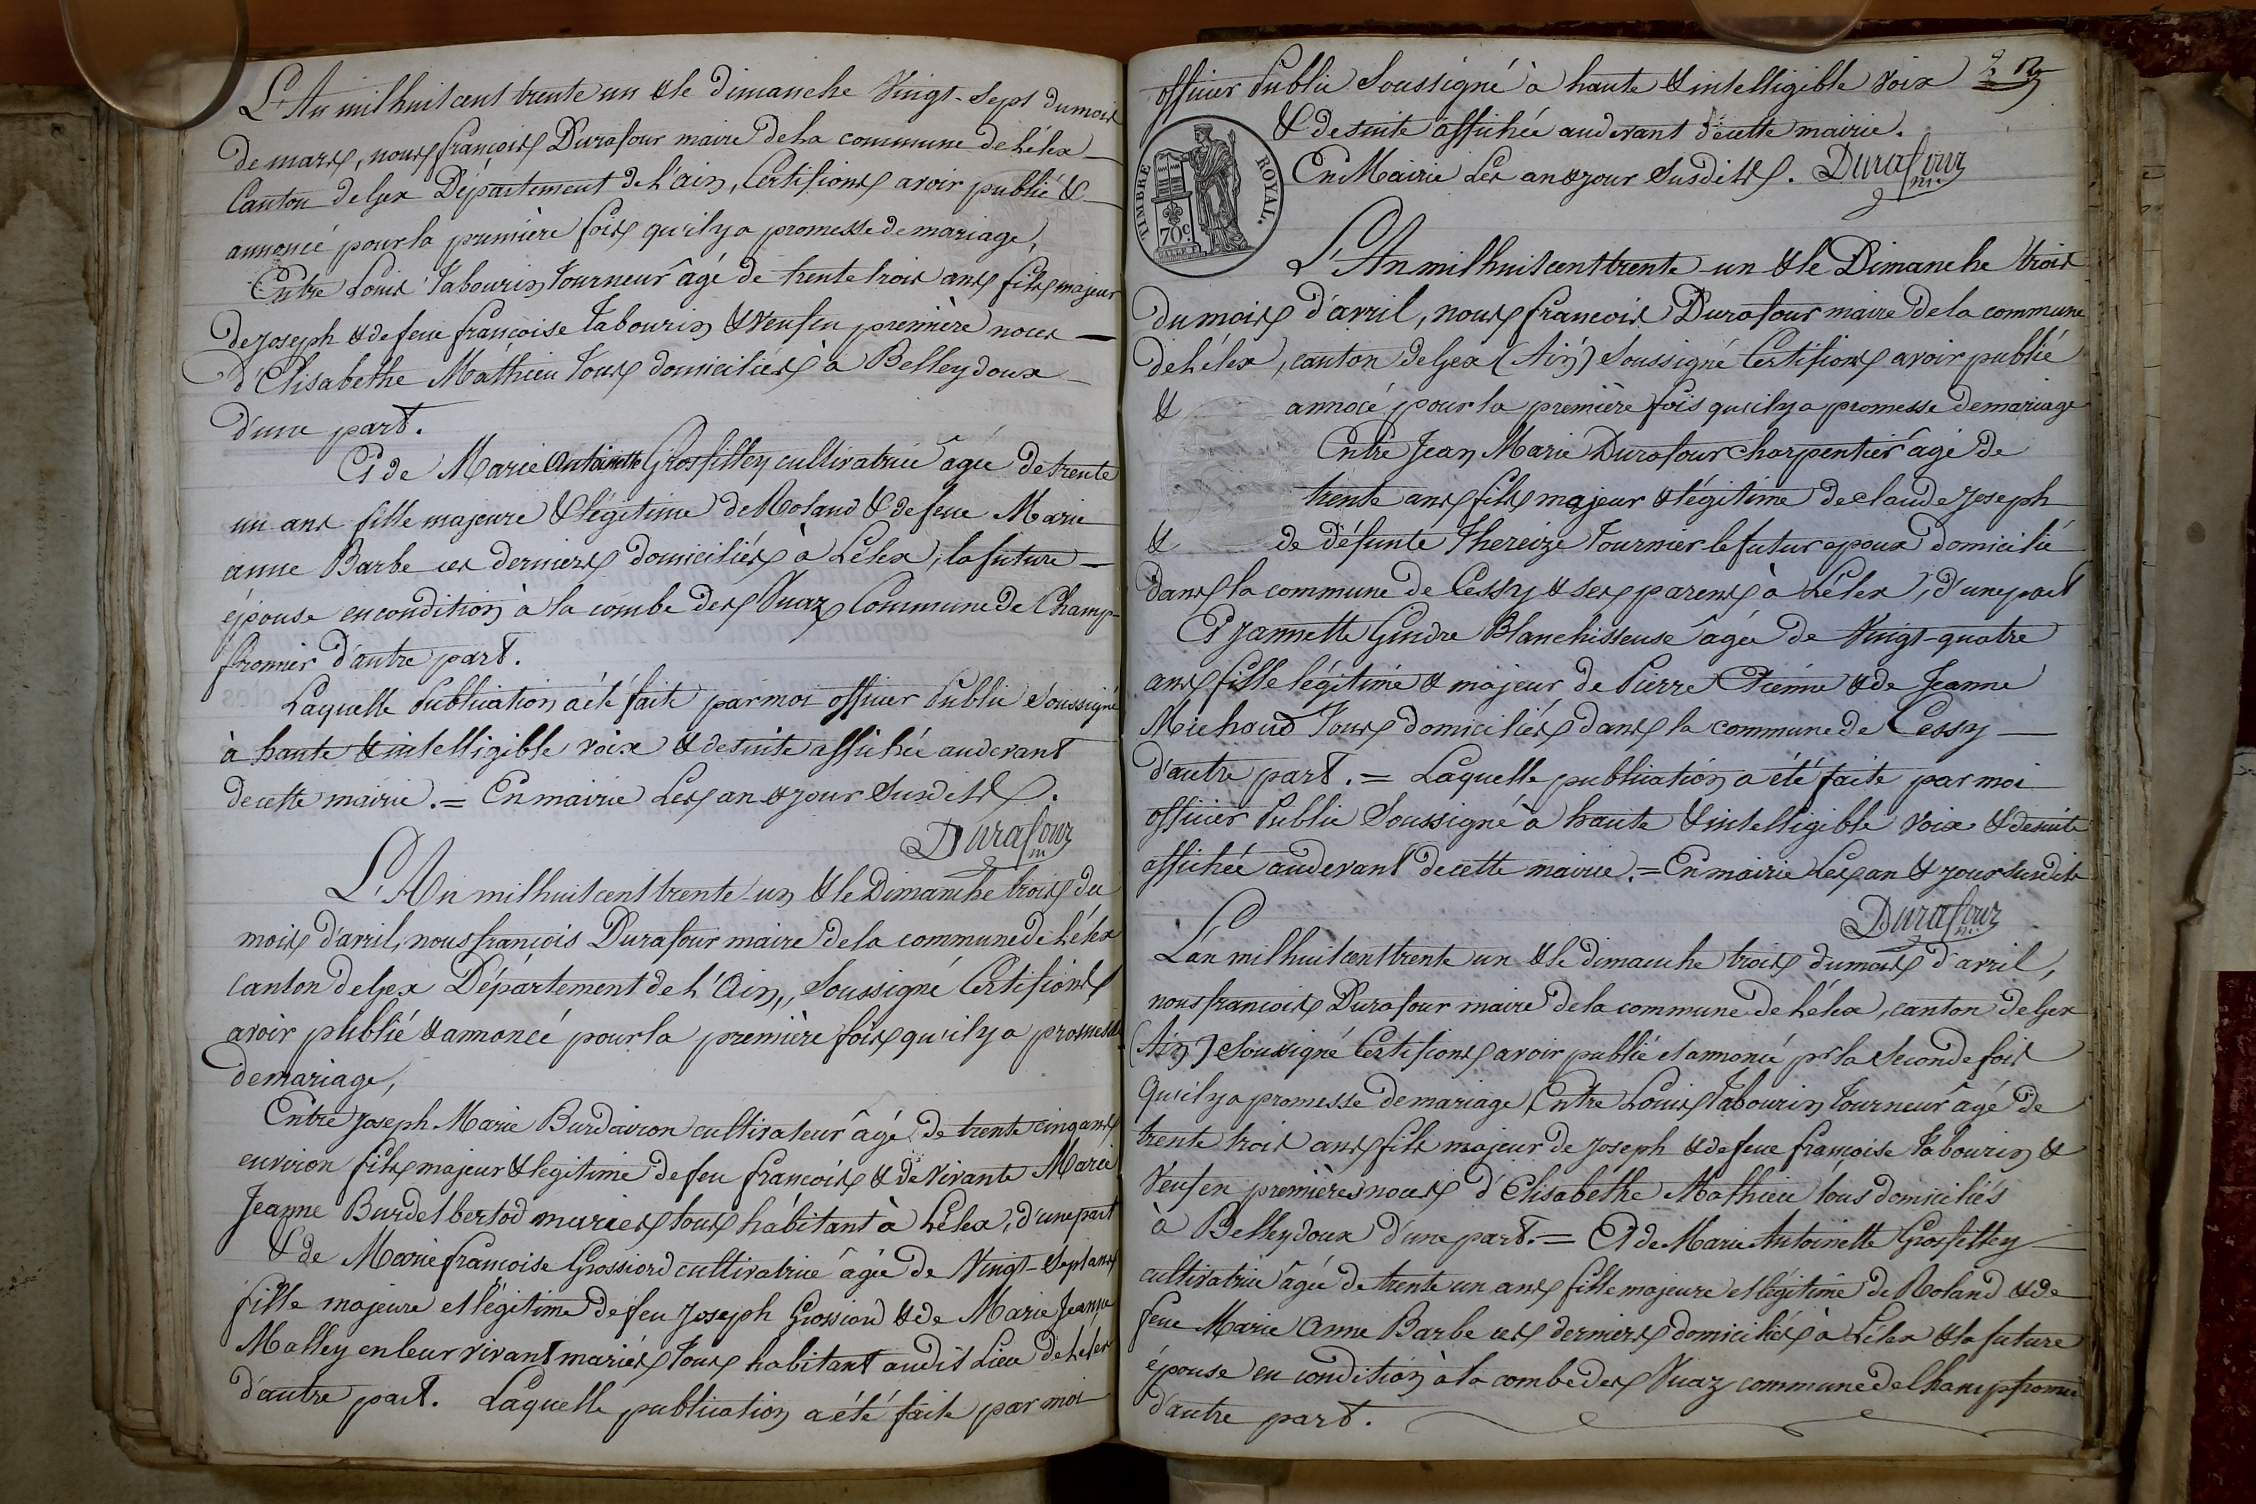 L'An mil huit cent trente un & le dimanche Vingt-Sept du mois
de mars, nous françois Durafour maire de la commune de Lélex
Canton de Gex Département de l'ain, Certifions avoir publié &
annoncé pour la première fois qu'il y a promesse de mariage,
Entre Louis Tabourin Tourneur âgé de trente trois ans fils majeur
de joseph & de feue françoise Tabourin & Veuf en première noces
d'Elisabethe Mathieu Tous domiciliés à Belleydoux
d'une part.
Et de Marie Antoinette Grosfilley cultivatrice âgée de trente
un ans fille majeure & légitime de Roland & de feue Marie
anne Barbe ces derniers domiciliés à Lélex, la future
épouse en condition à la combe des Vuaz Commune de Champ-
fromier d'autre part.
Laquelle Publication a été fait par moi officier Public Soussigné
à haute & intelligible voix & de suite affichée au devant
de cette mairie. = En mairie Les an & jour Susdits.
Durafour m.
L'An mil huit cent trente-un & le Dimanche trois du
mois d'avril, nous françois Durafour maire de la commune de Lélex
canton de Gex Département de L'Ain, Soussigné Certifions
avoir publié & annoncé pour la première fois qu'il y a promesse
de mariage,
Entre Joseph-Marie Burdairon cultivateur âgé de trente cinq ans
environ fils majeur & légitime de feu françois & de Vivante Marie
Jeanne Burdet bertod mariés tous habitant à Lélex, d'une part
& de Marie françoise Grossiord cultivatrice âgée de Vingt-Sept ans
fille majeure et légitime de feu Joseph Grossiord & de Marie Jeanne
Malley en leur vivant mariés Tous habitant au dit Lieu de Lélex
d'autre part. Laquelle publication a été faite par moi
officier Public Soussigné à haute & intelligible voix
& de suite affichée au devant de cette mairie.
En Mairie Les an & jour Susdits. Durafour m.
TIMBRE ROYAL.
70c.
L'An mil huit cent trente-un & le Dimanche trois
du mois d'avril, nous francois Durafour maire de la commune
de Lélex, canton de Gex (Ain) Soussigné Certifions avoir publié
& annocé pour la première fois qu'il y a promesse de mariage
Entre Jean Marie Durafour Charpentier âgé de
trente ans fils majeur & légitime de claude Joseph
& de défunte Thereize Tournier le futur epoux domicilié
dans la commune de Cessy & ses parens à Lélex, d'une part
Et Jannette Gindre Blanchisseuse âgée de Vingt-quatre
ans fille légitime & majeur de Pierre Etienne & de Jeanne
Michoud Tous domiciliés dans la commune de Cessy
d'autre part. = Laquelle publication a été faite par moi
officier Public Soussigné à haute & intelligible voix & de suite
affichée au devant de cette mairie. = En mairie Les an & jour susdits
Durafour m.
L'an mil huit cent trente un & le dimanche trois du mois d'avril,
nous francois Durafour maire de la commune de Lélex, canton de Gex
(Ain) Soussigné Certifions avoir publié et annoncé pr la Seconde fois
qu'il y a promesse de mariage Entre Louis Tabourin Tourneur âgé de
trente trois ans fils majeur de Joseph & de feue françoise Tabourin &
Veuf en premières noces d'Elisabethe Mathieu tous domiciliés
à Belleydoux d'une part. = Et de Marie Antoinette Grosfilley
cultivatrice âgée de trente un ans fille majeure et légitime de Roland & de
feue Marie Anne Barbe ces derniers domiciliés à Lélex & la future
épouse en condition à la combe des Vuaz commune de Champfromier
d'autre part.